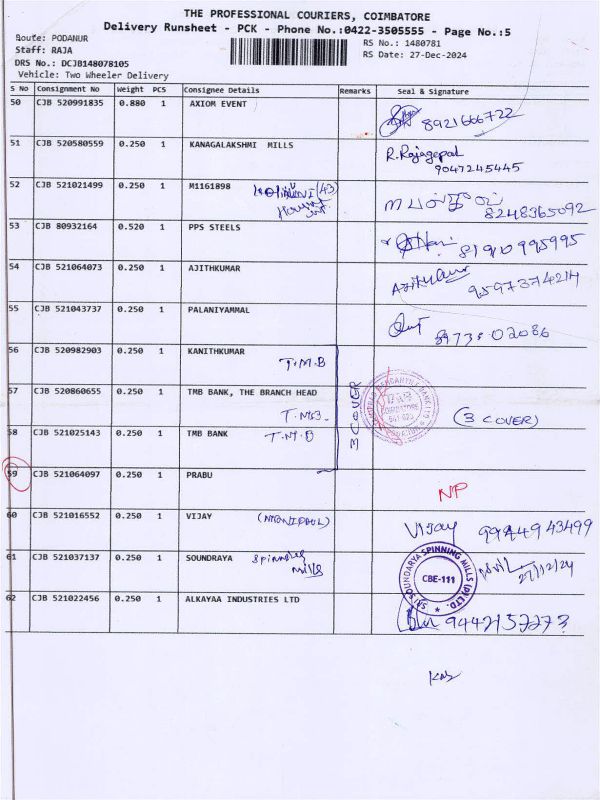 THE PROFESSIONAL COURIERS, COIMBATORE
Delivery Runsheet - PCK - Phone No.:0422-3505555 - Page No.:5
Route: PODANUR
RS No.: 1480781
Staff: RAJA
RS Date: 27-Dec-2024
DRS No.: DCJB148078105
Vehicle: Two Wheeler Delivery
S No Consignment No Weight PCS Consignee Details Remarks Seal & Signature
50 CJB 520991835 0.880 1 AXIOM EVENT 8921666722
51 CJB 520580559 0.250 1 KANAGALAKSHMI MILLS R.Rajagopal
9047245445
52 CJB 521021499 0.250 1 M1161898 (43)
8248365092
53 CJB 80932164 0.520 1 PPS STEELS 8190995995
54 CJB 521064073 0.250 1 AJITHKUMAR Ajithkumar 9597374214
55 CJB 521043737 0.250 1 PALANIYAMMAL
56 CJB 520982903 0.250 1 KANITHKUMAR T.M.B
57 CJB 520860655 0.250 1 TMB BANK, THE BRANCH HEAD T.M.B 3 COVER (3 COVER)
58 CJB 521025143 0.250 1 TMB BANK T.M.B
59 CJB 521064097 0.250 1 PRABU NP
60 CJB 521016552 0.250 1 VIJAY Vijay
61 CJB 521037137 0.250 1 SOUNDRAYA Spinning Mills 27/12/24
SRI SOUNDARYA SPINNING MILLS (P) LTD.
CBE-111
62 CJB 521022456 0.250 1 ALKAYAA INDUSTRIES LTD 9442157273